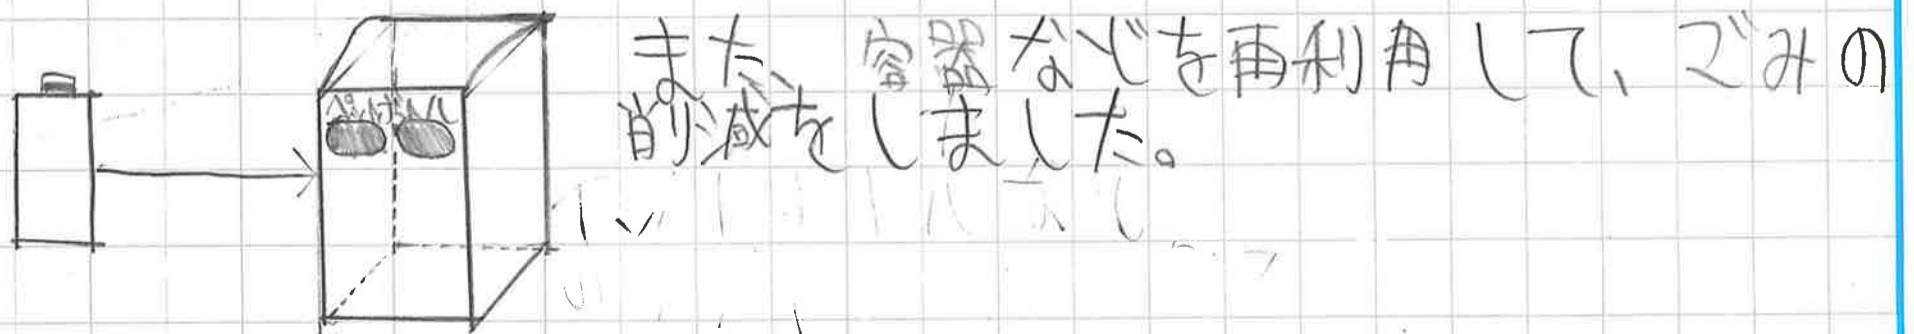 ペットボトル
また、容器などを再利用して、ごみの
削減をしました。